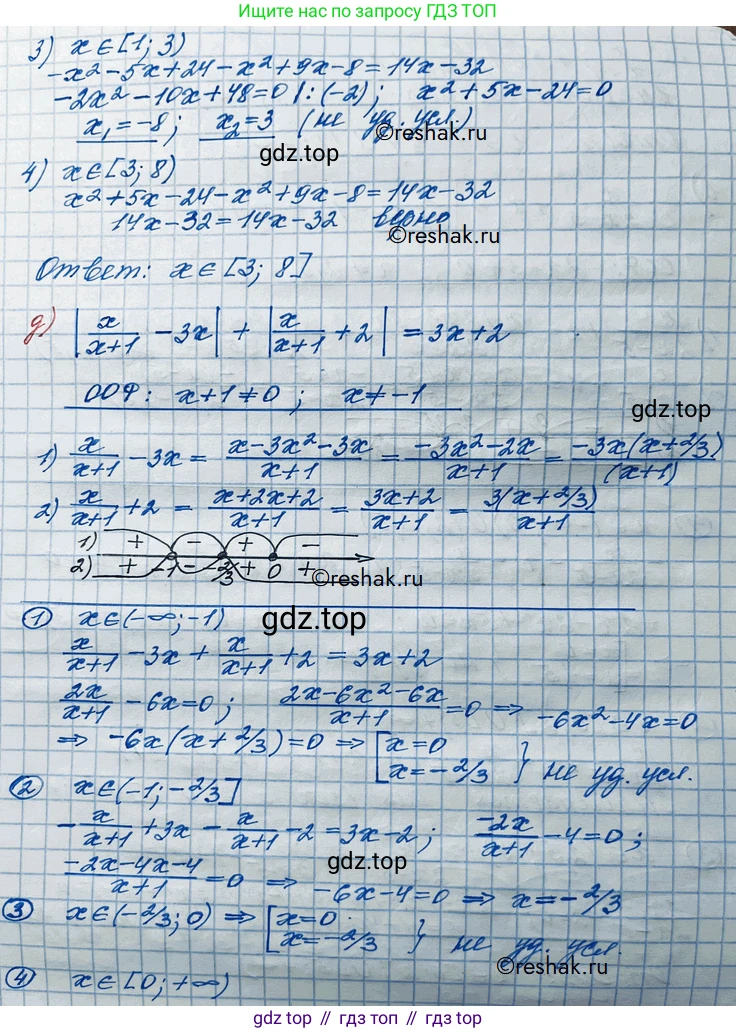 Ищите нас по запросу ГДЗ ТОП
3) x∈[1; 3)
-x²-5x+24-x²+9x-8=14x-32
-2x²-10x+48=0 |:(-2); x²+5x-24=0
x₁=-8; x₂=3 (не уд. усл.)
©reshak.ru
gdz.top
4) x∈[3; 8)
x²+5x-24-x²+9x-8=14x-32
14x-32=14x-32 верно
©reshak.ru
Ответ: x∈[3; 8]
g) |x/(x+1) - 3x| + |x/(x+1) + 2| = 3x+2
ООФ: x+1≠0; x≠-1
gdz.top
1) x/(x+1) - 3x = (x-3x²-3x)/(x+1) = (-3x²-2x)/(x+1) = -3x(x+2/3)/(x+1)
2) x/(x+1) + 2 = (x+2x+2)/(x+1) = (3x+2)/(x+1) = 3(x+2/3)/(x+1)
1) + - + -
2) + -1 - -2/3 + 0 +
©reshak.ru
① x∈(-∞; -1)
gdz.top
x/(x+1) - 3x + x/(x+1) + 2 = 3x+2
2x/(x+1) - 6x=0; (2x-6x²-6x)/(x+1) = 0 ⇒ -6x²-4x=0
⇒ -6x(x+2/3)=0 ⇒ [x=0 x=-2/3 } не уд. усл.
② x∈(-1; -2/3]
-x/(x+1) + 3x - x/(x+1) - 2 = 3x-2; -2x/(x+1) - 4=0;
(-2x-4x-4)/(x+1) = 0 ⇒ -6x-4=0 ⇒ x=-2/3
gdz.top
③ x∈(-2/3; 0) ⇒ [x=0 x=-2/3 } не уд. усл.
©reshak.ru
④ x∈[0; +∞)
gdz.top // гдз топ // gdz.top // гдз топ // gdz.top